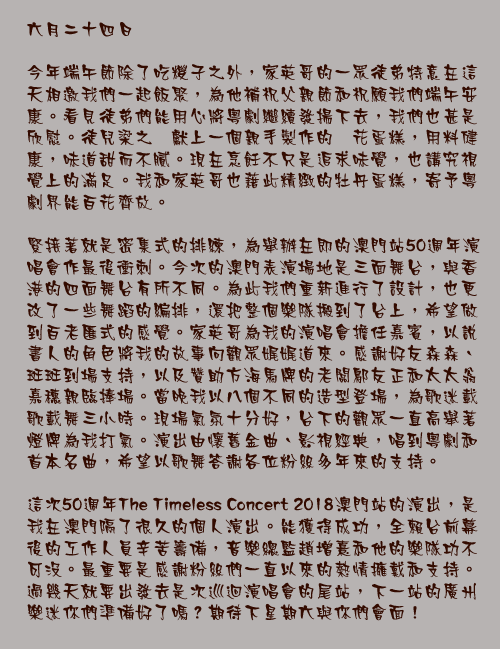 六月二十四日
今年端午節除了吃糉子之外，家英哥的一眾徒弟特意在這
天相邀我們一起飯聚，為他補祝父親節和祝願我們端午安
康。看見徒弟們能用心將粵劇繼續發揚下去，我們也甚是
欣慰。徒兒梁之 獻上一個親手製作的 花蛋糕，用料健
康，味道甜而不膩。現在烹飪不只是追求味覺，也講究視
覺上的滿足。我和家英哥也藉此精緻的牡丹蛋糕，寄予粵
劇界能百花齊放。
緊接著就是密集式的排練，為舉辦在即的澳門站50週年演
唱會作最後衝刺。今次的澳門表演場地是三面舞台，與香
港的四面舞台有所不同。為此我們重新進行了設計，也更
改了一些舞蹈的編排，還把整個樂隊搬到了台上，希望做
到百老匯式的感覺。家英哥為我的演唱會擔任嘉賓，以說
書人的角色將我的故事向觀眾娓娓道來。感謝好友森森、
斑斑到場支持，以及贊助方海馬牌的老闆鄭友正和太太翁
嘉穗親臨捧場。當晚我以八個不同的造型登場，為歌迷載
歌載舞三小時。現場氣氛十分好，台下的觀眾一直高舉著
燈牌為我打氣。演出由懷舊金曲、影視經典，唱到粵劇和
首本名曲，希望以歌舞答謝各位粉絲多年來的支持。
這次50週年The Timeless Concert 2018澳門站的演出，是
我在澳門隔了很久的個人演出。能獲得成功，全賴台前幕
後的工作人員辛苦籌備，音樂總監趙增熹和他的樂隊功不
可沒。最重要是感謝粉絲們一直以來的熱情擁戴和支持。
過幾天就要出發去是次巡迴演唱會的尾站，下一站的廣州
樂迷你們準備好了嗎？期待下星期六與你們會面！